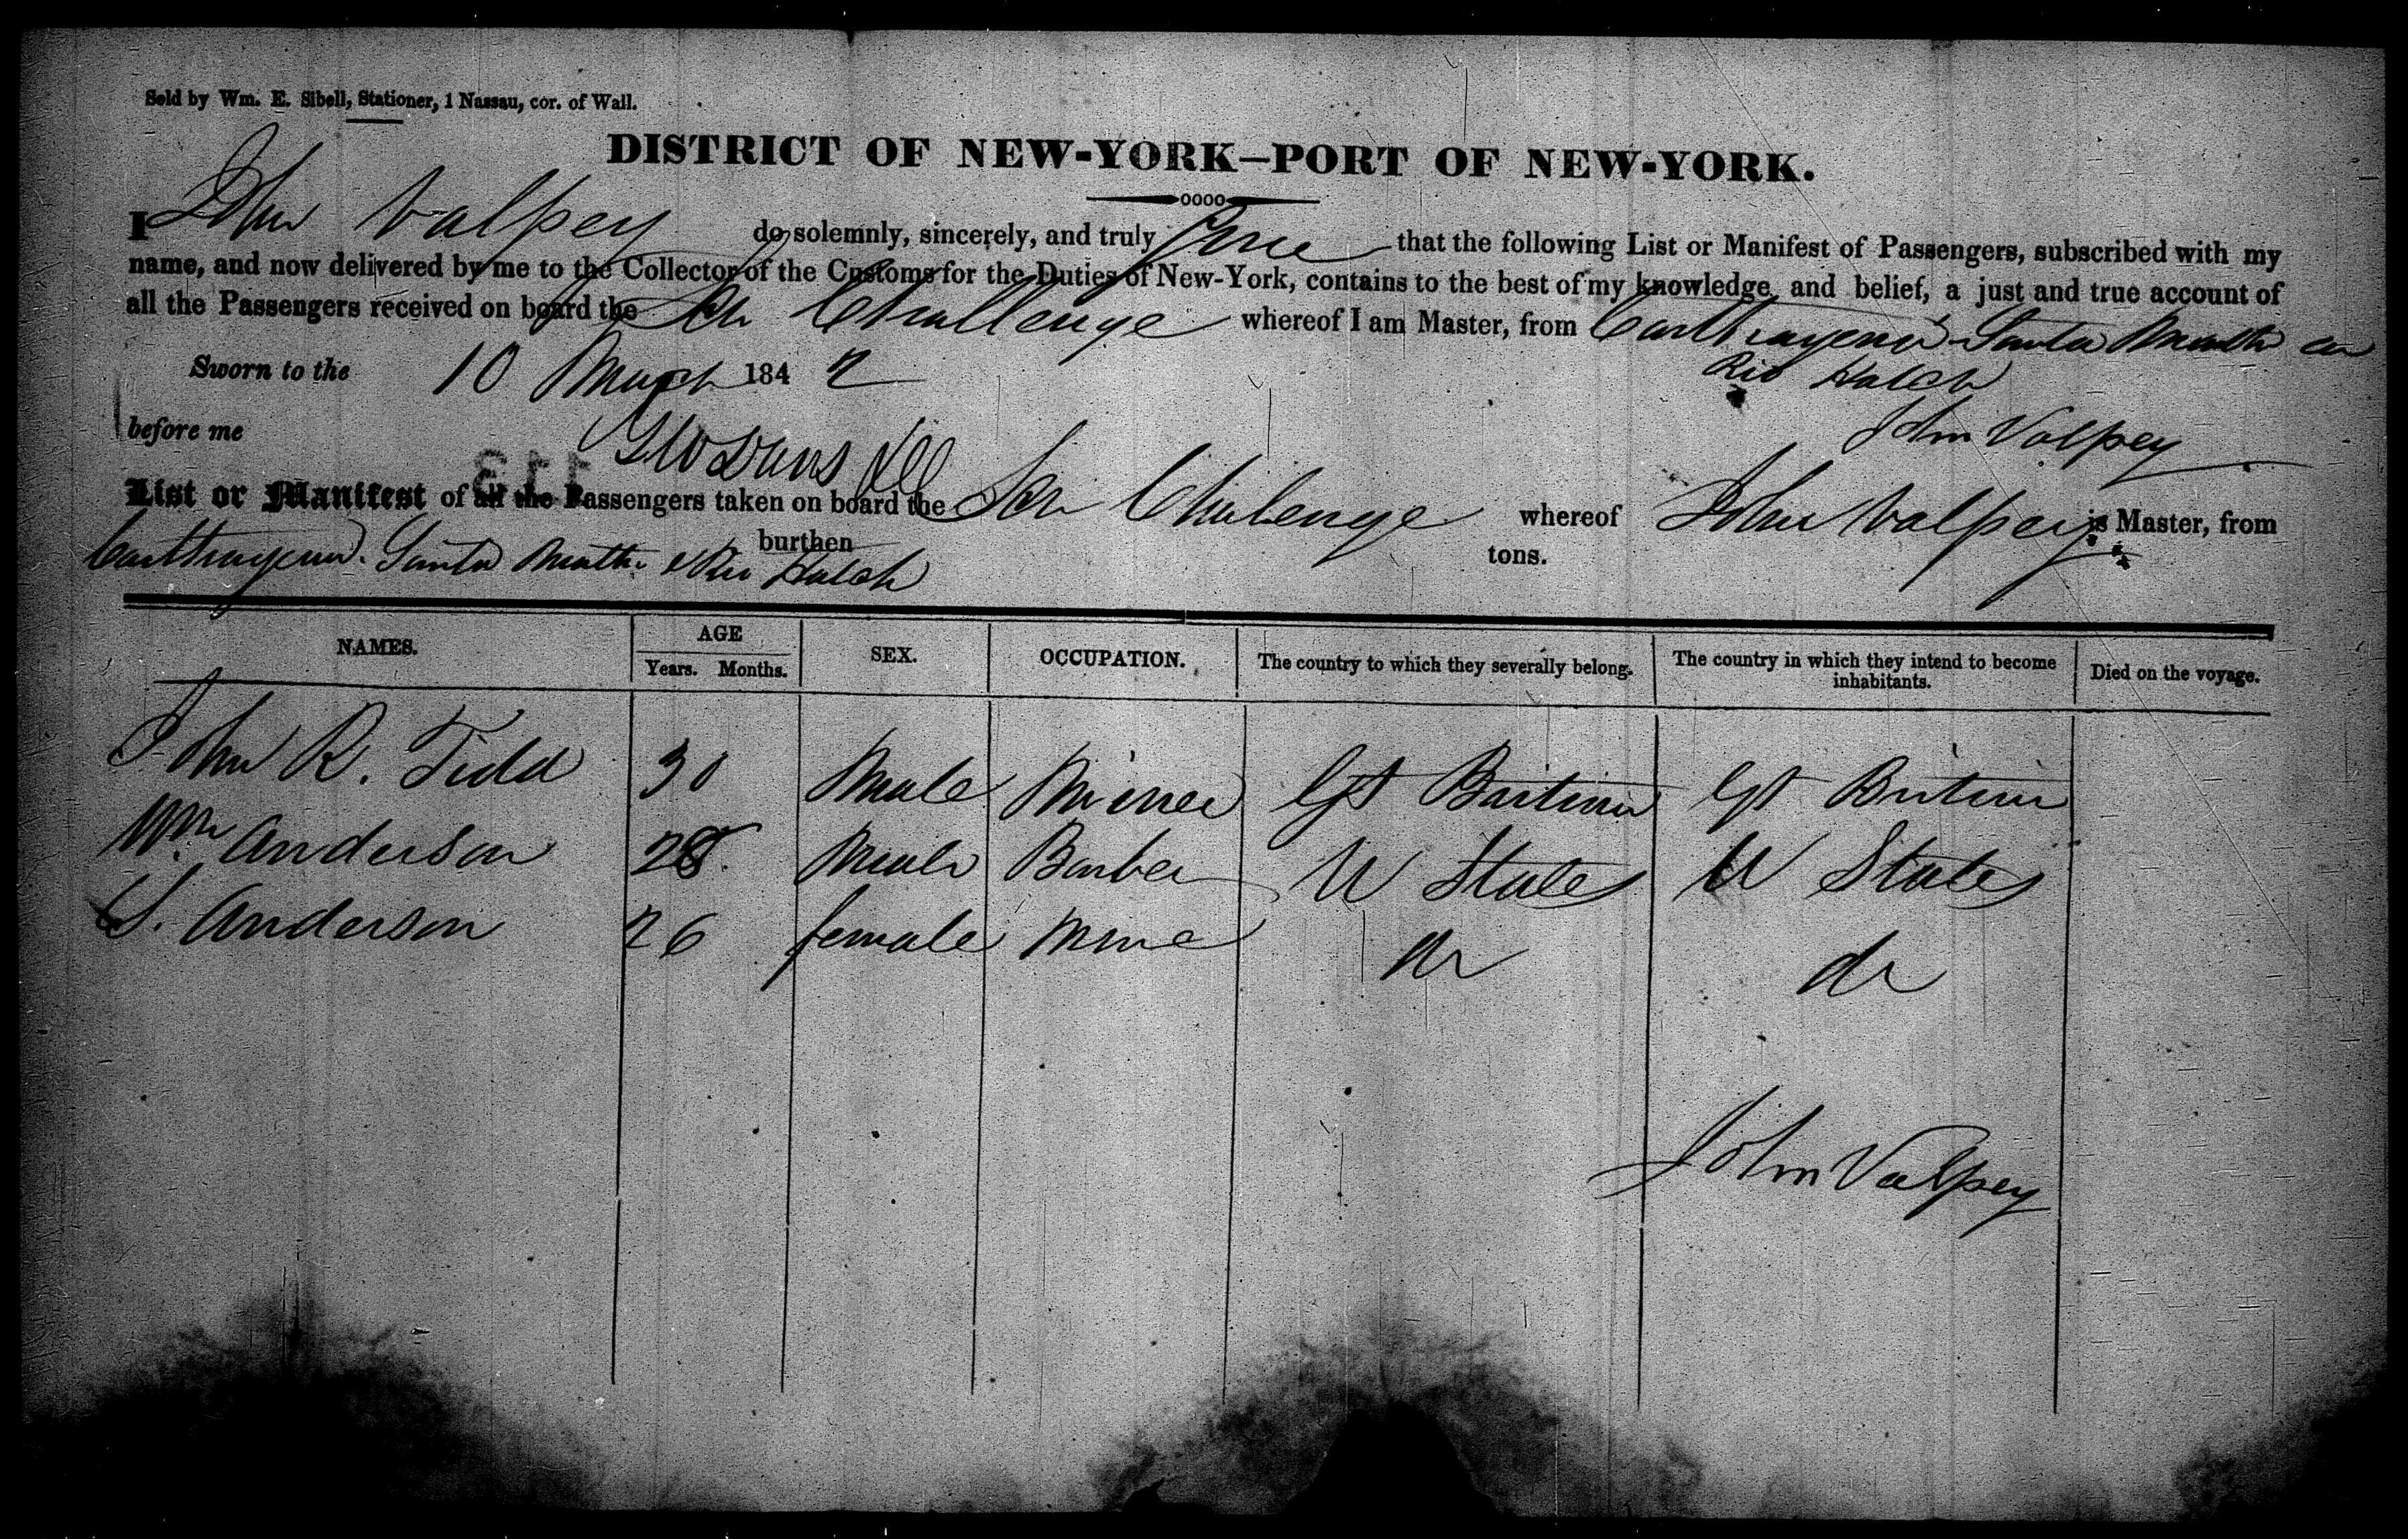 Sold by Wm. E. Sibell, Stationer, 1 Nassau, cor. of Wall.
DISTRICT OF NEW-YORK—PORT OF NEW-YORK.
I John Valpey do solemnly, sincerely, and truly that the following List or Manifest of Passengers, subscribed with my
name, and now delivered by me to the Collector of the Customs for the Duties of New-York, contains to the best of my knowledge and belief, a just and true account of
all the Passengers received on board the Sch Challenge whereof I am Master, from Carthagena Santa Martha
Rio Hatch
Sworn to the 10 March 1842
John Valpey
before me
List or Manifest of all the Passengers taken on board the Sch Chalenge whereof John Valpey is Master, from
Carthagena Santa Martha & Rio Hatch burthen tons.
NAMES. AGE Years. Months. SEX. OCCUPATION. The country to which they severally belong. The country in which they intend to become inhabitants. Died on the voyage.
John R. Tidd 30 Male Miner Gt Britain Gt Britain
Wm Anderson 28 Male Barber U States U States
S. Anderson 26 female none do do
John Valpey